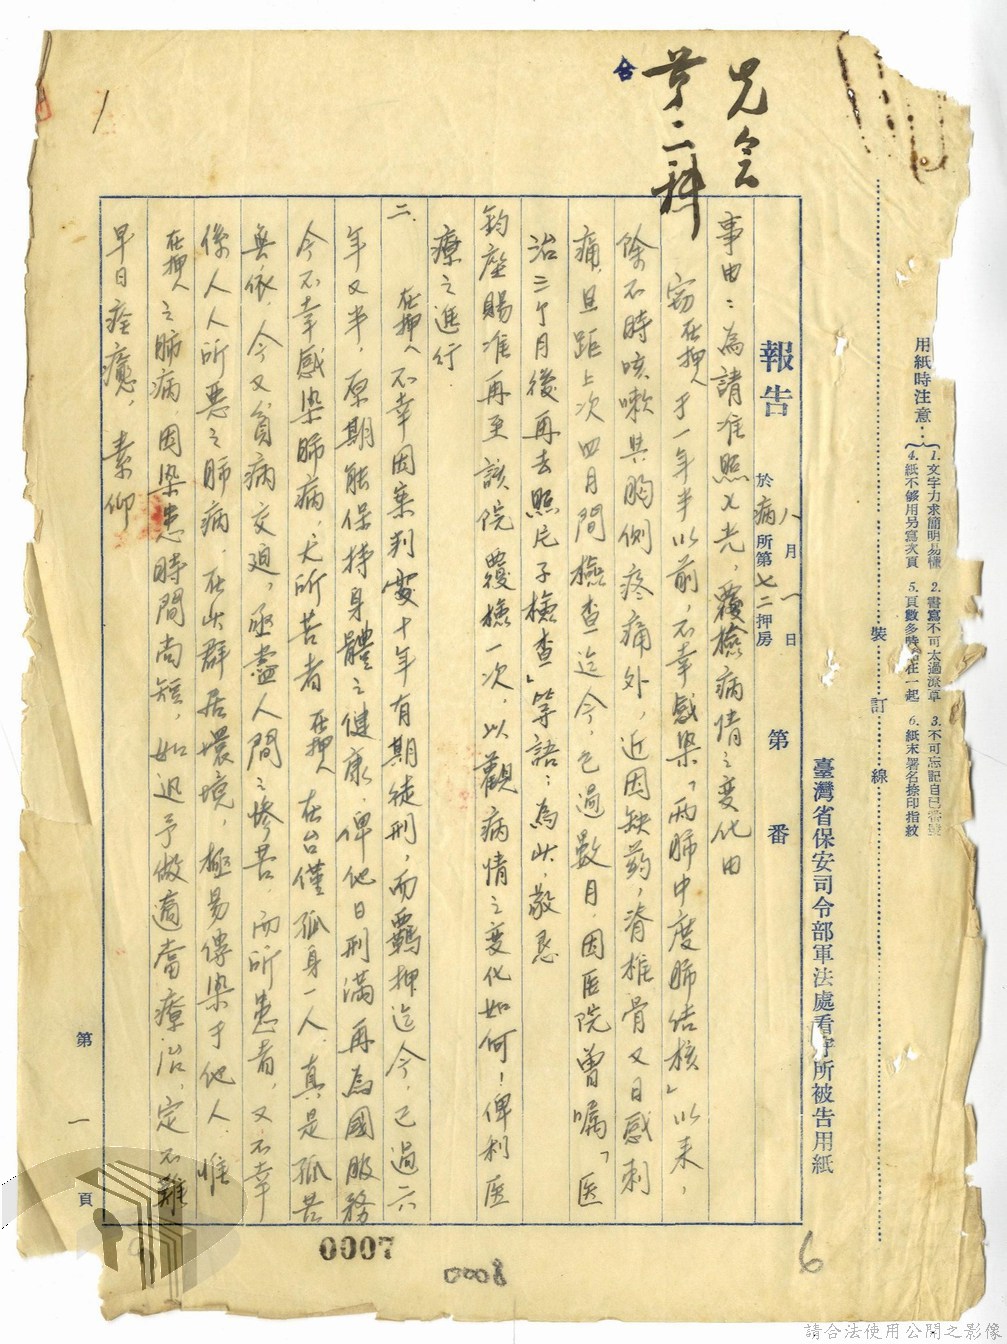 用紙時注意：
1.文字力求簡明易懂 2.書寫不可太過潦草 3.不可忘記自己
4.紙不够用另寫次頁 5.頁數多時 在一起 6.紙末署名捺印指紋
裝訂線
臺灣省保安司令部軍法處看守所被告用紙
報告 於病所第七二押房 八月一日 第 番
兄会
第二科
事由：為請准照乂光，覆檢病情之變化由
窃在押人于一年半以前，不幸感染「兩肺中度肺结核」以来，
除不時咳嗽與胸側疼痛外，近因缺药，脊椎骨又日感刺
痛，且距上次四月間檢查迄今，已過數月，因医院曾嘱「医
治三个月後再去照片子檢查」等語：為此，敬恳
鈞座賜准再至該院覆檢一次，以觀病情之变化如何！俾利医
療之進行
二.在押人不幸因案判處十年有期徒刑，而羈押迄今，已過六
年又半，原期能保持身體之健康，俾他日刑滿再為國服務
今不幸感染肺病，尤所苦者在押人在台僅孤身一人，真是孤苦
無依，今又貧病交迫，亟盡人間之慘苦，而所患者，又不幸
係人人所惡之肺病，在此群居環境，極易傳染于他人，惟
在押人之肺病，因染患時間尚短，如迅予做適當療治，定不難
早日痊癒，素仰
第一頁
0007
0008
6
請合法使用公開之影像